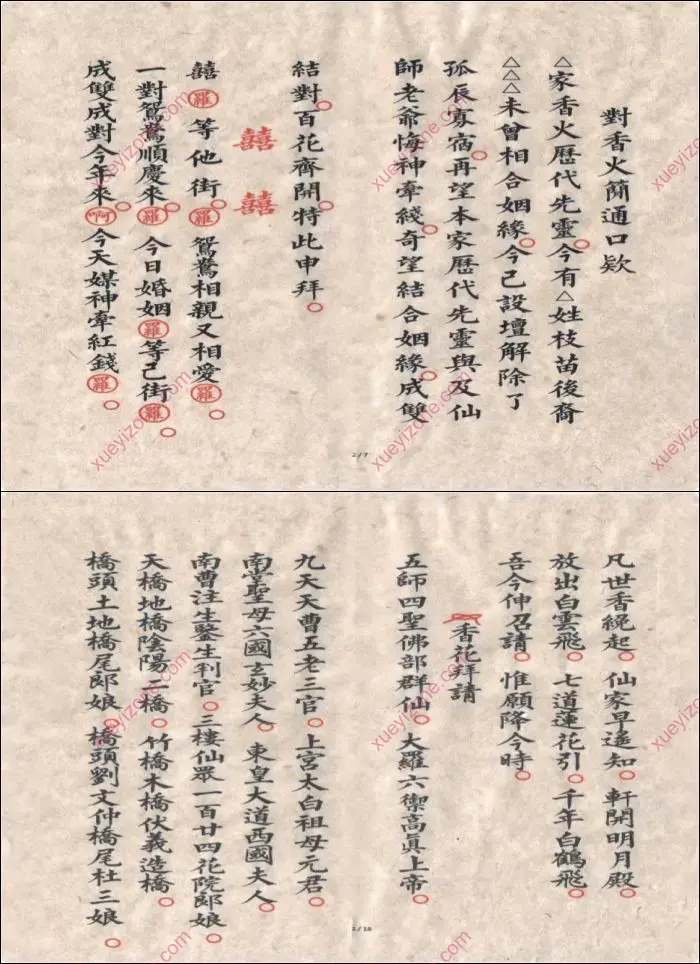 對香火蕳通口欵
△家香火歷代先靈○今有△姓枝苗後裔
△△△未曾相合姻緣○今已設壇解除了
孤辰寡宿○再望本家歷代先靈與及仙
師老爺悔神牽綫○奇望結合姻緣○成雙
結對○百花齊開○特此申拜○
囍 囍
囍羅 等他街羅 鴛鴦相親又相愛羅○
一對鴛鴦順慶來羅○ 今日婚姻羅等已街羅○
成雙成對今年來○啊 今天媒神牽紅錢羅○
2/7
凡世香繞起○ 仙家早遙知○ 軒開明月殿○
放出白雲飛○ 七道蓮花引○ 千年白鶴飛○
吾今伸召請○ 惟願降今時○
香花拜請
五師四聖佛部群仙○ 大羅六禦高眞上帝○
九天天曹五老三官○ 上宮太白祖母元君○
南堂聖母六國玄妙夫人○ 東皇大道西國夫人○
南曹注生鑒生判官○ 三樓仙眾一百廿四花院郎娘○
天橋地橋陰陽二橋○ 竹橋木橋伏義造橋○
橋頭土地橋尾郎娘○ 橋頭劉文仲橋尾杜三娘○
2/18
xueyizone.com